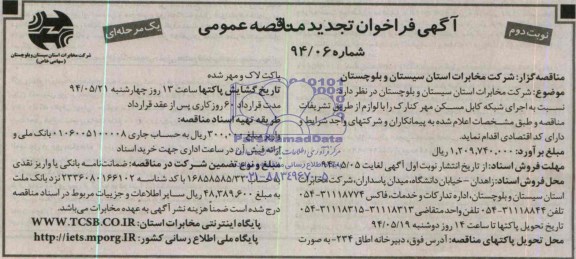 نوبت دوم
آگهی فراخوان تجدید مناقصه عمومی
یک مرحله‌ای
شماره ۹۴/۰۶
شرکت مخابرات استان سیستان و بلوچستان
(سهامی خاص)
مناقصه‌گزار: شرکت مخابرات استان سیستان و بلوچستان
موضوع: شرکت مخابرات استان سیستان و بلوچستان در نظر دارد
نسبت به اجرای شبکه کابل مسکن مهر کنارک را با لوازم از طریق تشریفات
مناقصه و طبق مشخصات اعلام شده به پیمانکاران و شرکتهای واجد شرایط و
دارای کد اقتصادی اقدام نماید.
مبلغ برآورد: ۱,۲۰۹,۷۴۰,۰۰۰ ریال
مهلت فروش اسناد: از تاریخ انتشار نوبت اول آگهی لغایت ۹۴/۰۵/۰۵
محل فروش اسناد: زاهدان - خیابان دانشگاه، میدان پاسداران، شرکت مخابرات
استان سیستان و بلوچستان، اداره تدارکات و خدمات، فاکس ۳۱۱۱۸۷۷۴-۰۵۴
تلفن ۳۱۱۱۸۸۴۴-۰۵۴ تلفن واحد متقاضی ۳۱۱۱۸۳۱۳-۳۱۱۱۸۳۱۵-۰۵۴
تاریخ تحویل پاکتها تا ساعت ۱۴ روز دوشنبه ۹۴/۰۵/۱۹
محل تحویل پاکتهای مناقصه: آدرس فوق، دبیرخانه اطاق ۲۳۴- به صورت
پاکت لاک و مهر شده
تاریخ گشایش پاکتها ساعت ۱۳ روز چهارشنبه ۹۴/۰۵/۲۱
مدت قرارداد ۶۰ روز کاری پس از عقد قرارداد
طریقه تهیه اسناد مناقصه:
ریال به حساب جاری ۰۱۰۶۰۰۵۱۰۰۰۰۸ بانک ملی و
ارائه فیش آن در ساعت اداری جهت خرید اسناد
مبلغ و نوع تضمین شرکت در مناقصه: ضمانت‌نامه بانکی یا واریز نقدی
با کد شناسه ۲۳۳۶۰۸۰۱۶۶۱۰۲ نزد بانک ملت
به مبلغ ۴۸,۳۸۹,۶۰۰ ریال سایر اطلاعات و جزییات مربوط در اسناد مناقصه
درج شده است ضمناً هزینه نشر آگهی به عهده مخابرات می‌باشد.
پایگاه اینترنتی مخابرات استان: WWW.TCSB.CO.IR
پایگاه ملی اطلاع رسانی کشور: http://iets.mporg.IR